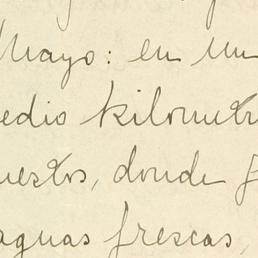 Mayo: en un
edio kilometr
uestos, donde
aguas frescas,